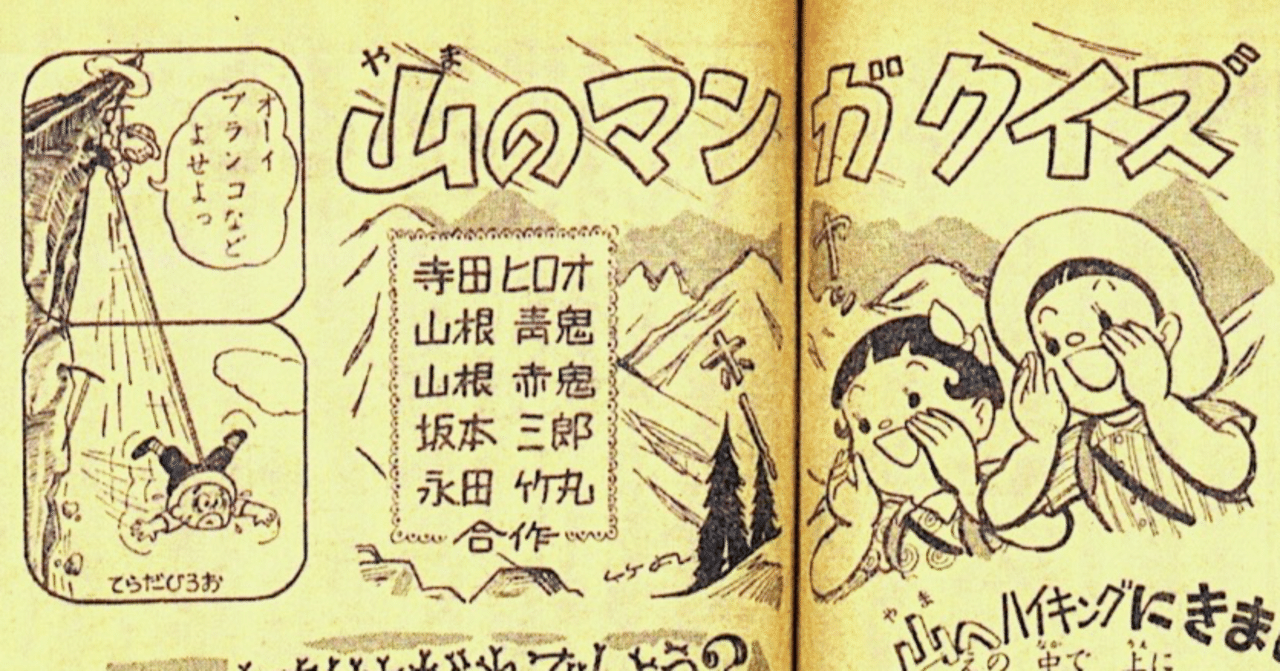 山のマンガクイズ
やま
オーイ
ブランコなど
よせよっ
てらだひろお
寺田ヒロオ
山根 青鬼
山根 赤鬼
坂本 三郎
永田 竹丸
合作
ヤ
ッ
ホ
やま
山へハイキングにきま
えの 中で 上に
なか うえ
でしょう?